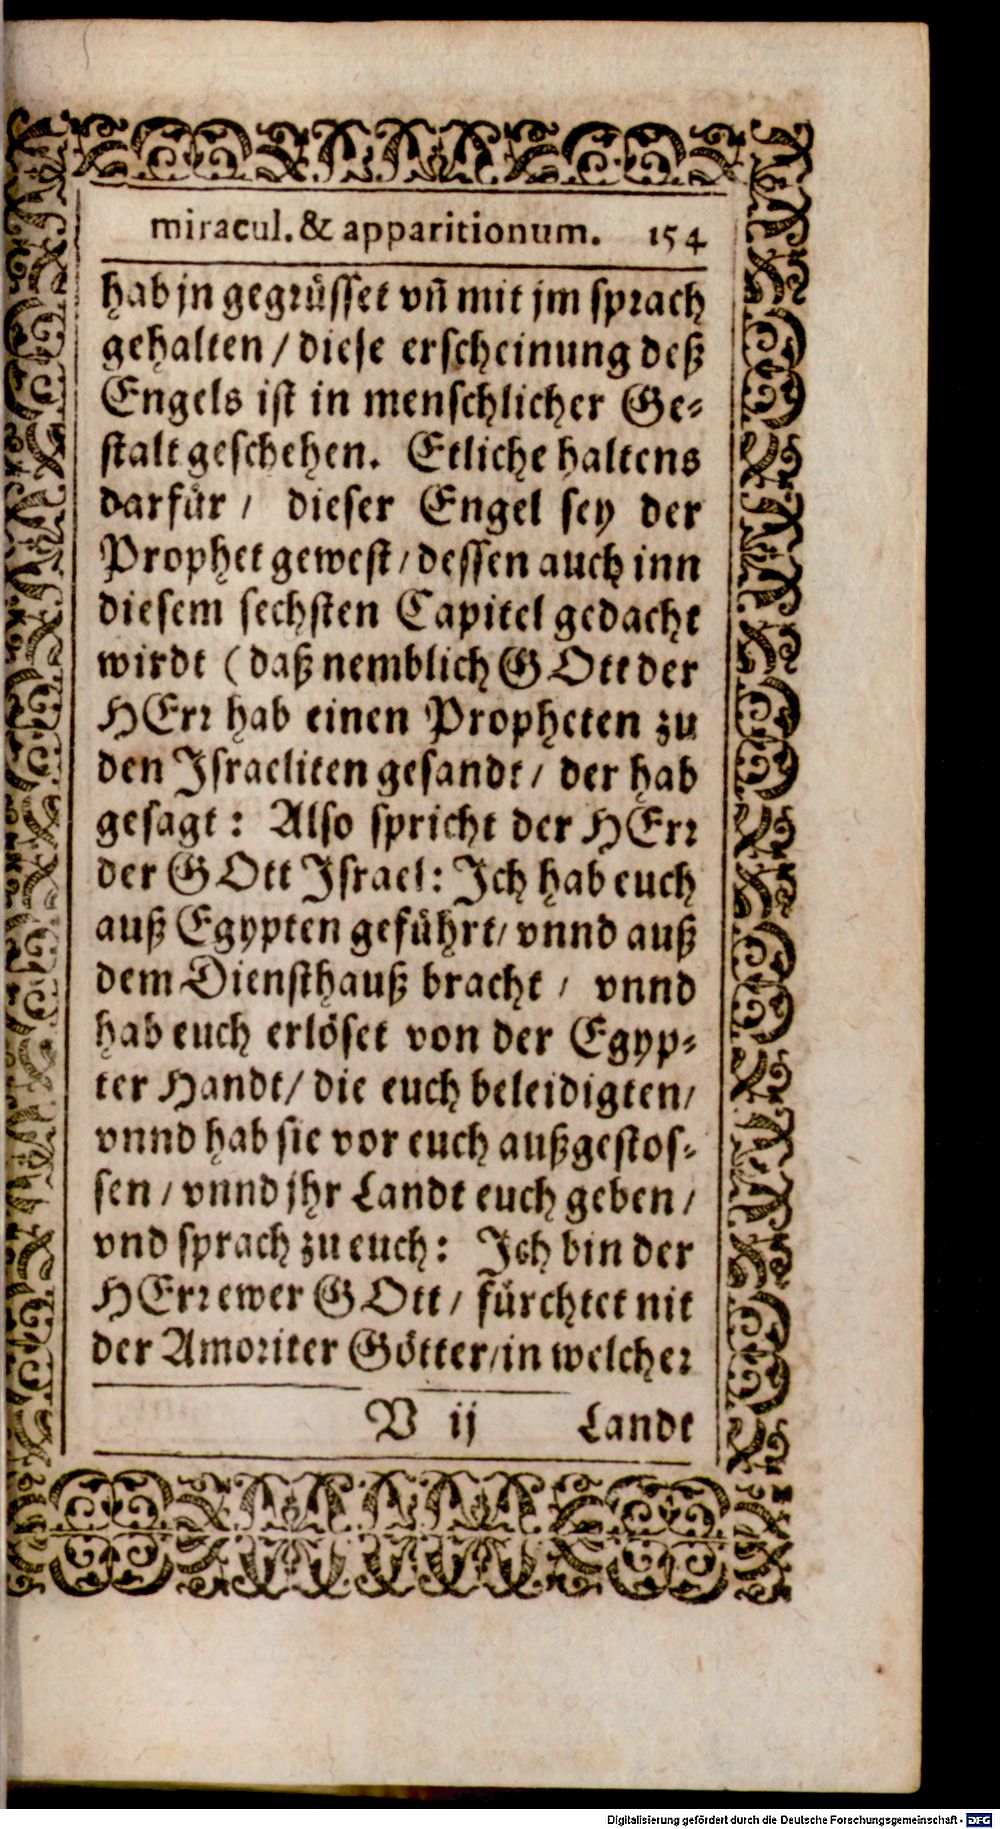 miracul. & apparitionum. 154
hab jn gegrüsset vñ mit jm sprach
gehalten / diese erscheinung deß
Engels ist in menschlicher Ge-
stalt geschehen. Etliche haltens
darfür / dieser Engel sey der
Prophet gewest / dessen auch inn
diesem sechsten Capitel gedacht
wirdt (daß nemblich GOtt der
HErr hab einen Propheten zu
den Israeliten gesandt / der hab
gesagt: Also spricht der HErr
der GOtt Israel: Ich hab euch
auß Egypten geführt / vnnd auß
dem Diensthauß bracht / vnnd
hab euch erlöset von der Egyp-
ter Handt / die euch beleidigten /
vnnd hab sie vor euch außgestos-
sen / vnnd jhr Landt euch geben /
vnd sprach zu euch: Ich bin der
HErr ewer GOtt / fürchtet nit
der Amoriter Götter / in welcher
V ij Landt
Digitalisierung gefördert durch die Deutsche Forschungsgemeinschaft - DFG